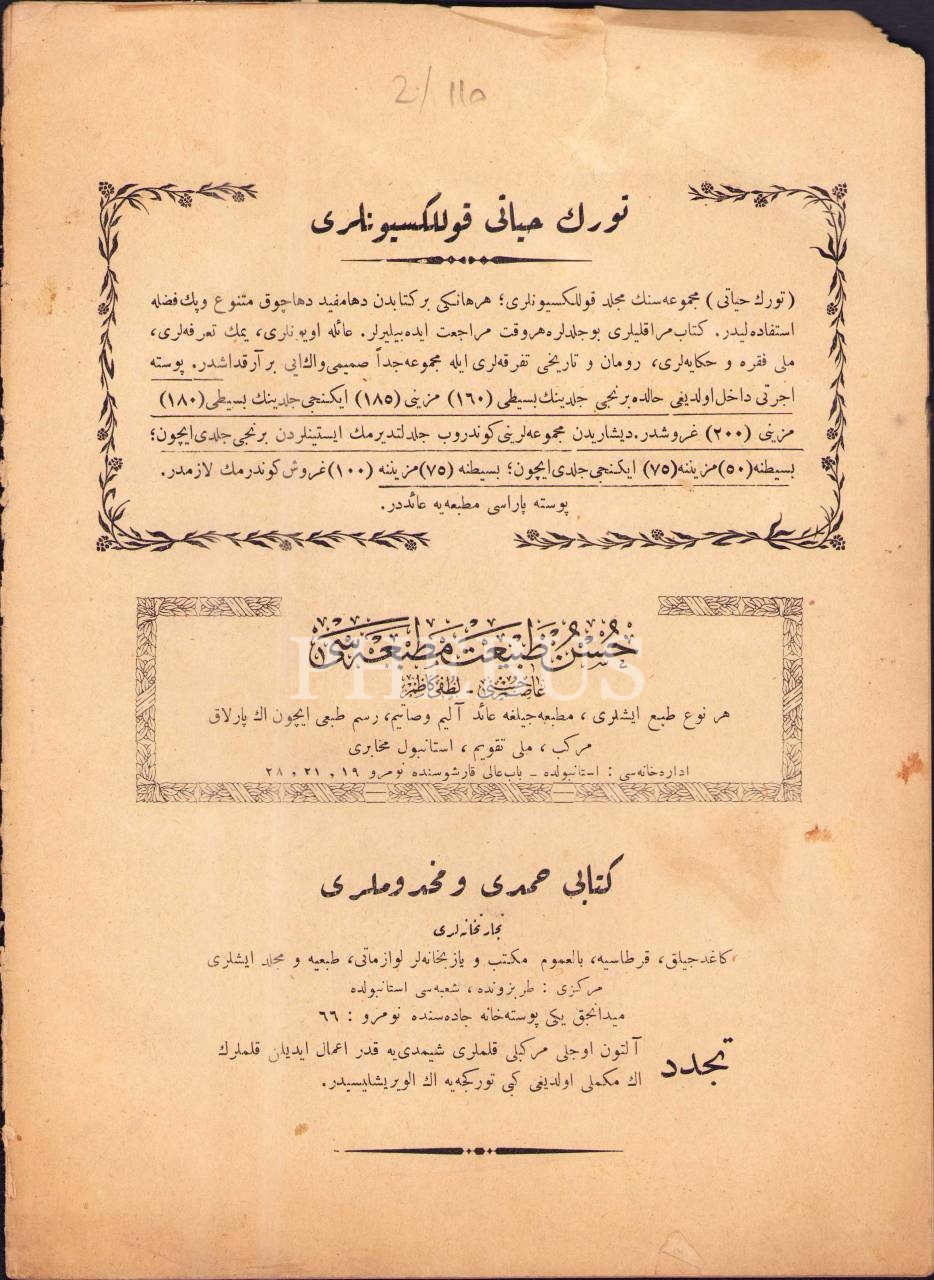 2/110
تورك حياتى قوللكسيونلرى
(تورك حياتى) مجموعه‌سنك مجلد قوللكسيونلرى؛ هرهانكى بر كتابدن دها مفيد دها چوق متنوع و پك فضله
استفاده‌ليدر. كتاب مراقليلرى بو جلدلره هر وقت مراجعت ايده‌بيليرلر. عائله اويونلرى، يمك تعرفه‌لرى،
ملى فقره و حكايه‌لرى، رومان و تاريخى تفرقه‌لرى ايله مجموعه جداً صميمى واك ايى بر آرقداشدر. پوسته
اجرتى داخل اولديغى حالده برنجى جلدينك بسيطى (١٦٠) مزينى (١٨٥) ايكنجى جلدينك بسيطى (١٨٠)
مزينى (٢٠٠) غروشدر. ديشاريدن مجموعه‌لرينى كوندروب جلدلتديرمك ايستينلردن برنجى جلدى ايچون؛
بسيطنه (٥٠) مزيننه (٧٥) ايكنجى جلدى ايچون؛ بسيطنه (٧٥) مزيننه (١٠٠) غروش كوندرمك لازمدر.
پوسته پاراسى مطبعه‌يه عائددر.
حُسْنِ طَبيعَتْ مَطْبَعَه‌سى
عاصم حسنى - لطفى كاظم
هر نوع طبع ايشلرى، مطبعه‌جيلغه عائد آليم وصاتيم، رسم طبعى ايچون اك پارلاق
مركب، ملى تقويم، استانبول مخابرى
اداره‌خانه‌سى : استانبولده - باب عالى قارشوسنده نومرو ١٩, ٢١, ٢٨
كتابى حمدى و مخدوملرى
تجارتخانه‌لرى
كاغدجيلق، قرطاسيه، بالعموم مكتب و يازيخانه‌لر لوازماتى، طبعيه و مجلد ايشلرى
مركزى : طربزونده، شعبه‌سى استانبولده
ميدانجق يكى پوسته‌خانه جاده‌سنده نومرو : ٦٦
تجدد
آلتون اوجلى مركبلى قلملرى شيمدى‌يه قدر اعمال ايديلن قلملرك
اك مكملى اولديغى كبى توركجه‌يه اك الويريشليسيدر.
PHEBUS